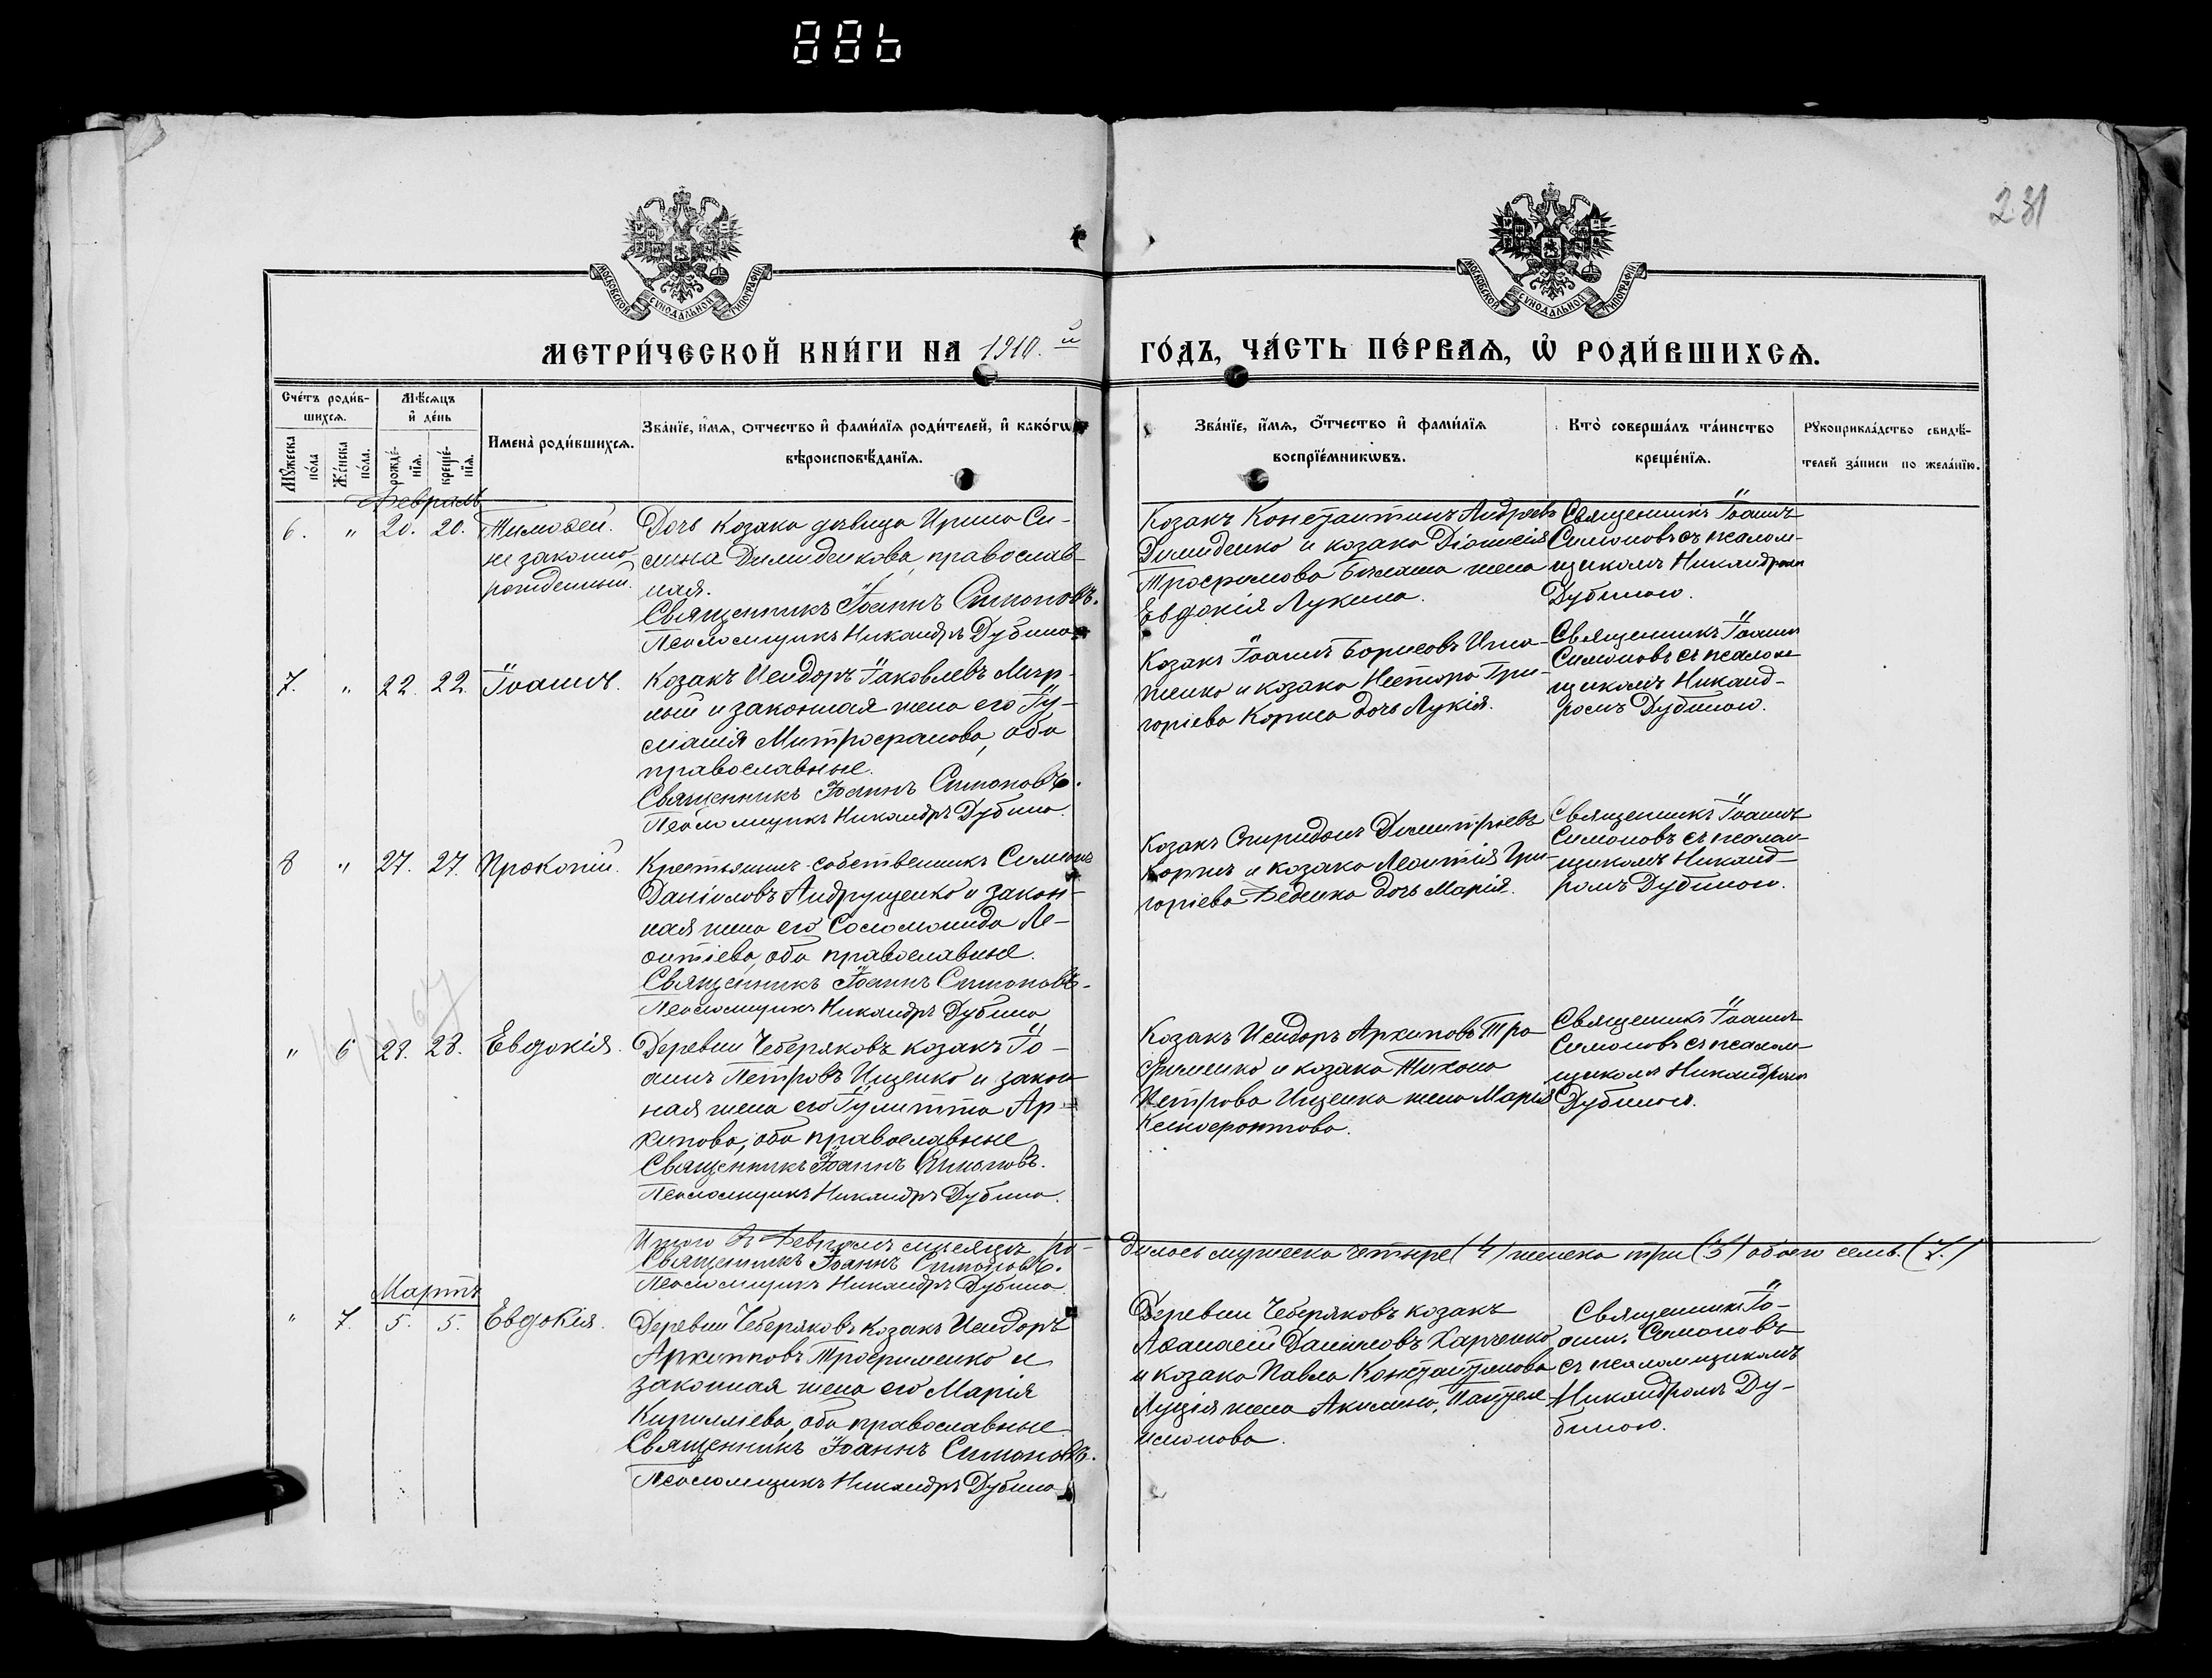 886
231
МОСКОВСКОЙ СѴНОДАЛЬНОЙ ТИПОГРАФІИ
МОСКОВСКОЙ СѴНОДАЛЬНОЙ ТИПОГРАФІИ
МЕТРИ́ЧЕСКОЙ КНИ́ГИ НА 1910.й ГО́ДЪ, ЧА́СТЬ ПЕ́РВАѦ, Ѡ҆ РОДИ́ВШИХСѦ.
Сче́тъ роди́в-
шихсѧ.
Мꙋ́жеска
по́ла
Же́нска
по́ла.
Мѣ́сѧцъ
и҆ де́нь
рожде́-
нїѧ.
креще́-
нїѧ.
И҆мена̀ роди́вшихсѧ.
Зва́нїе, и҆́мѧ, ѻ҆́тчество и҆ фами́лїѧ роди́телей, и҆ како́гѡ
вѣроисповѣ́данїѧ.
Зва́нїе, и҆́мѧ, ѻ҆́тчество и҆ фами́лїѧ
воспрїе́мникѡвъ.
Кто̀ соверша́лъ та́инство
креще́нїѧ.
Рꙋкоприкла́дство свидѣ́-
телей за́писи по жела́нїю.
Февраль
6. " 20. 20. Тимоѳей.
незаконно-
рожденный.
Дочь козака дѣвица Ирина Си-
мина Димиденкова, православ-
ная.
Священникъ Іоаннъ Симоновъ.
Псаломщикъ Никандръ Дубина
Козакъ Константинъ Андреевъ
Димиденко и козака Діонисія
Трофимова жена
Евдокія Лукина.
Священникъ Іоаннъ
Симоновъ съ псалом-
щикомъ Никандромъ
Дубиною.
7. " 22. 22. Іоаннъ.
Козакъ Исидоръ Іаковлевъ Мир-
ный и законная жена его Іу-
Митрофанова, оба
православные.
Священникъ Іоаннъ Симоновъ.
Псаломщикъ Никандръ Дубина.
Козакъ Іоаннъ Борисовъ Игна-
тенко и козака Нестора Гри-
горіева Корнса дочь Лукія.
Священникъ Іоаннъ
Симоновъ съ псалом
щикомъ Никанд-
ромъ Дубиною.
8 " 27. 27. Прокопій.
Крестьянинъ-собственникъ Симонъ
Даніиловъ Андрущенко и закон-
ная жена его Соломонида Ле-
онтіева, оба православные.
Священникъ Іоаннъ Симоновъ.
Псаломщикъ Никандръ Дубина
Козакъ Спиридонъ Димитріевъ
Корнсъ и козака Леонтія Гри-
горіева Феденка дочь Марія.
Священникъ Іоаннъ
Симоновъ съ псалом-
щикомъ Никанд-
ромъ Дубиною.
" 6 28. 28. Евдокія.
Деревни Чеберяковъ козакъ Іо-
аннъ Петровъ Ищенко и закон-
ная жена его Іулитта Ар-
хипова, оба православные
Священникъ Іоаннъ Симоновъ.
Псаломщикъ Никандръ Дубина.
Козакъ Исидоръ Архиповъ Тро-
фименко и козака Тихона
Петрова Ищенка жена Марія
Ксенофонтова.
Священникъ Іоаннъ
Симоновъ съ псалом-
щикомъ Никандромъ
Дубиною.
Итого въ Февралѣ мѣсяцѣ ро-дилось мужеска четыре (4) женска три (3) обоего семь. (7.)
Священникъ Іоаннъ Симоновъ.
Псаломщикъ Никандръ Дубина
Мартъ
" 7. 5. 5. Евдокія.
Деревни Чеберяковъ козакъ Исидоръ
Архиповъ Трофименко и
законная жена его Марія
Кирилліева, оба православные
Священникъ Іоаннъ Симоновъ.
Псаломщикъ Никандръ Дубина
Деревни Чеберяковъ козакъ
Аѳанасій Даниловъ Харченко
и козака Павла Константинова
Луція жена Акименко, Пантеле-
имонова.
Священникъ Іо-
аннъ Симоновъ
съ псаломщикомъ
Никандромъ Ду-
биною.